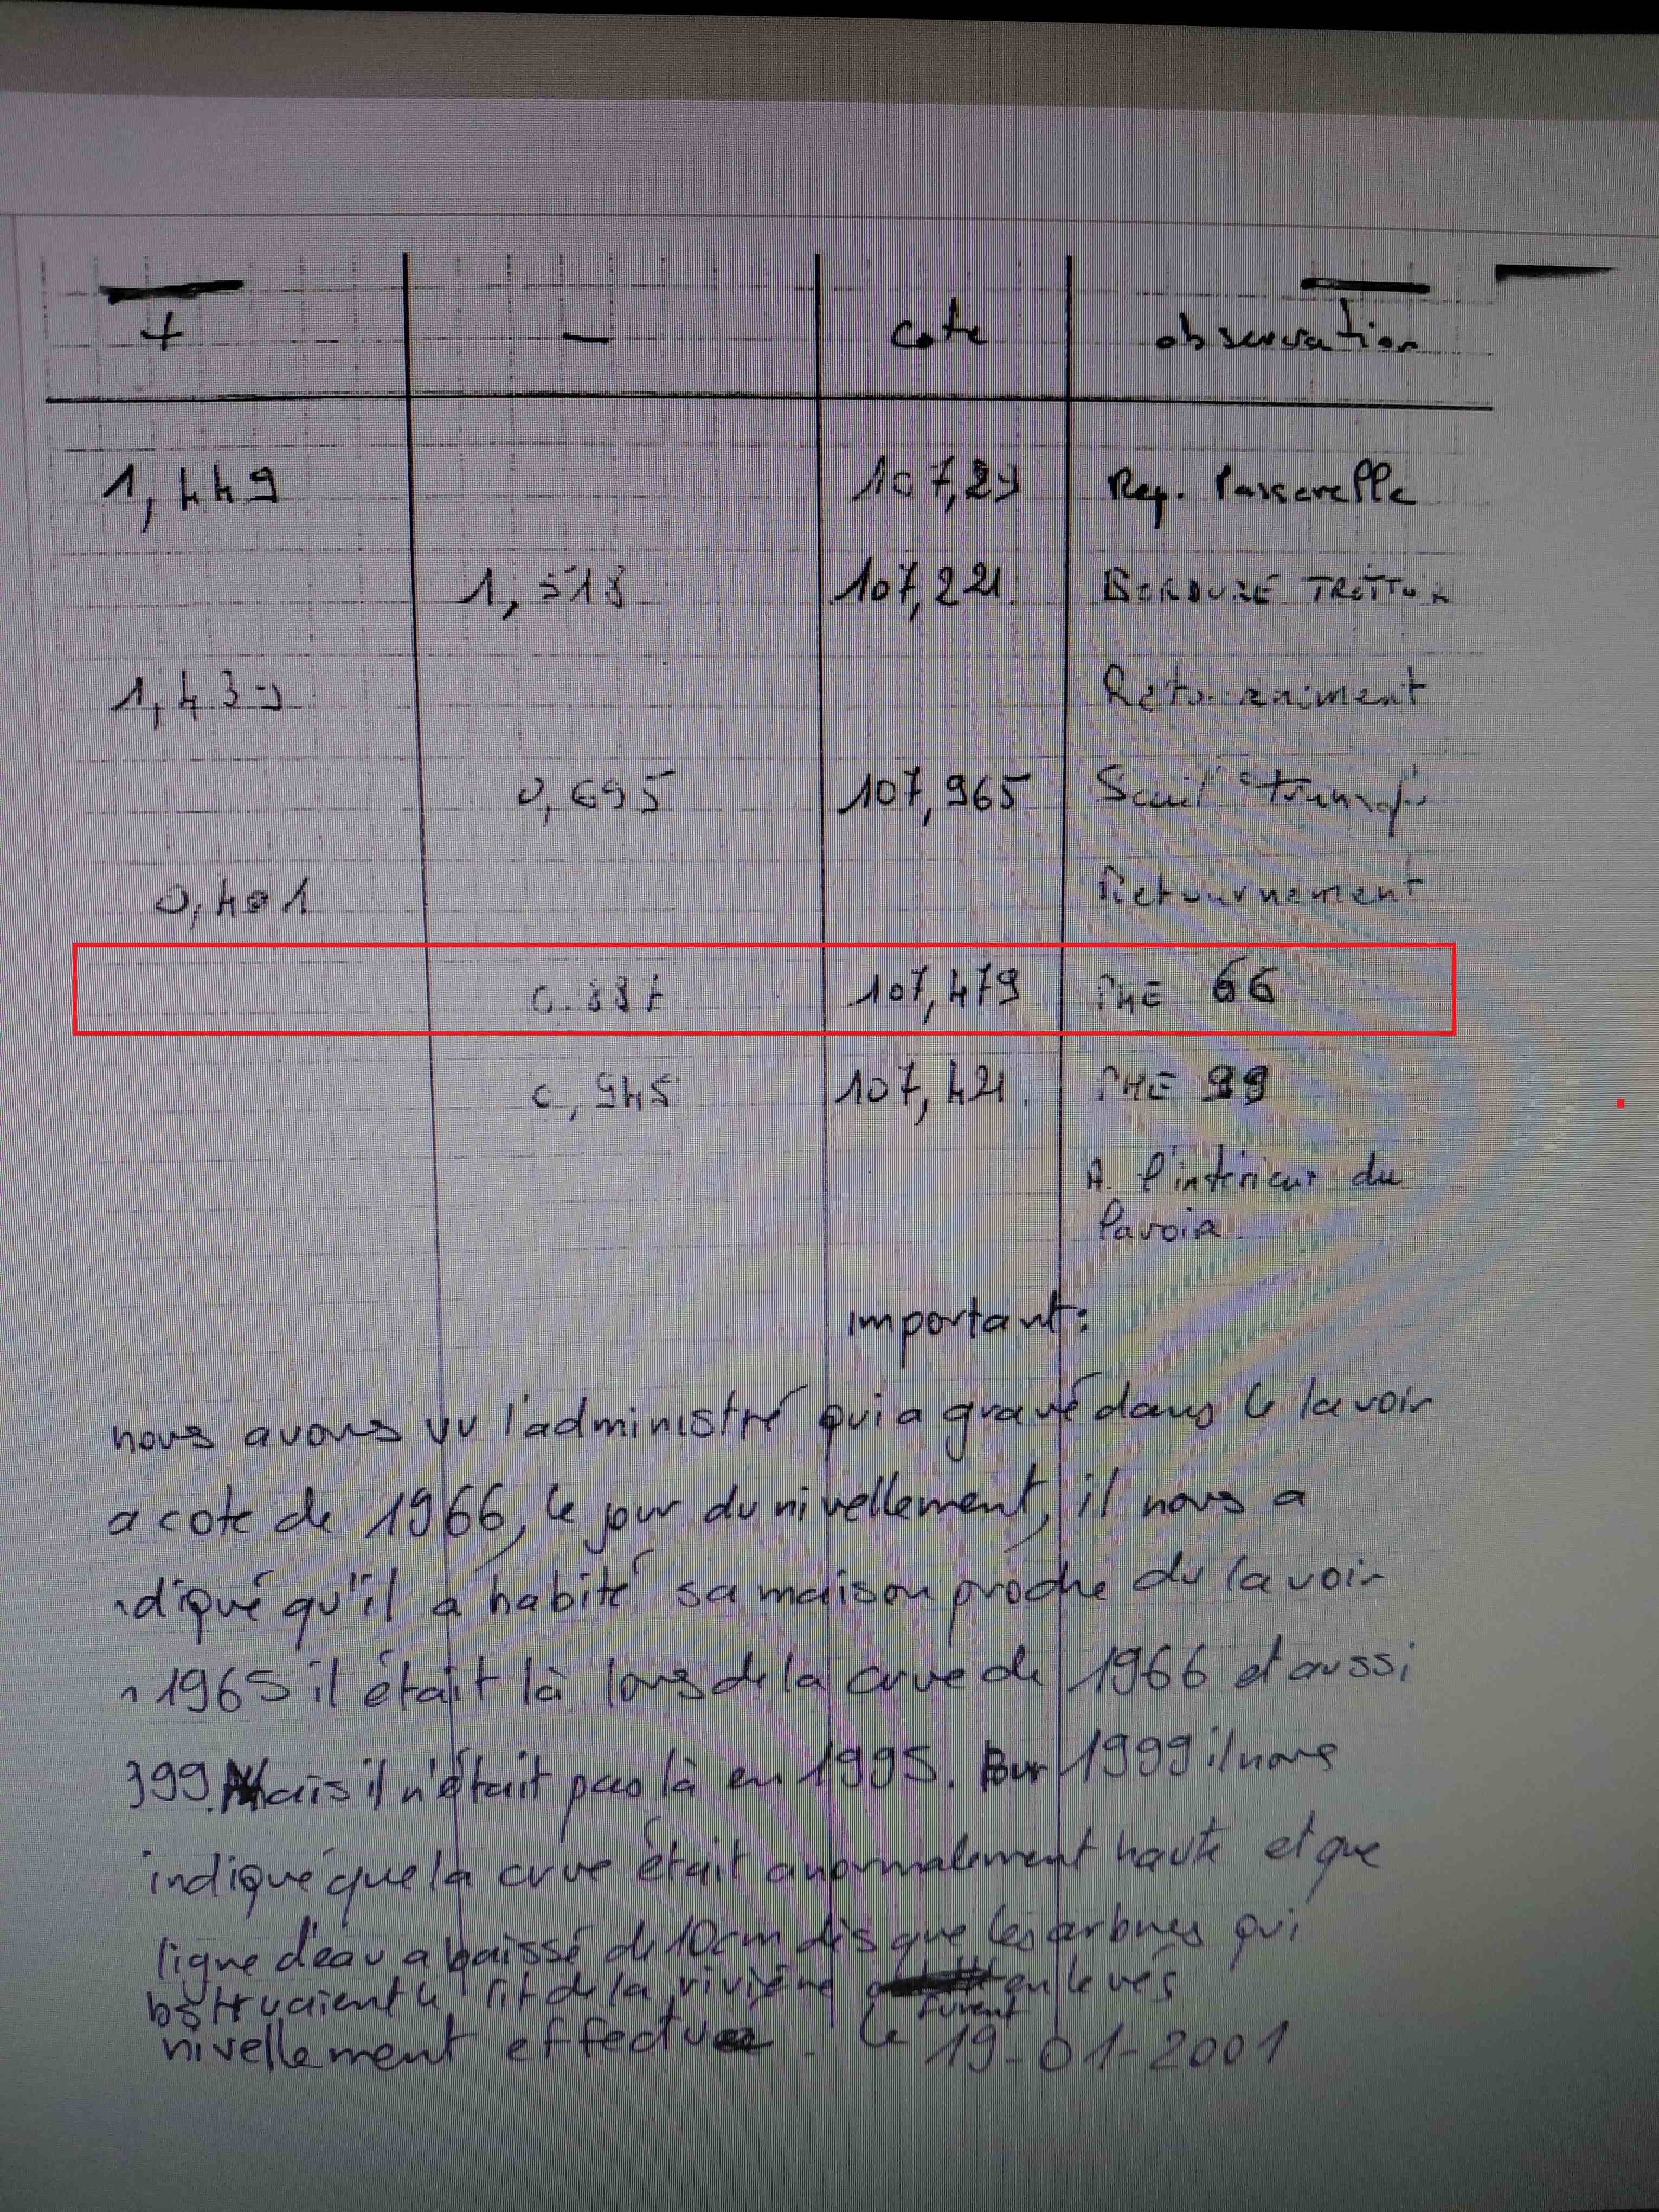 + — cote observation
1,449 107,29 Rep. Passerelle
1,518 107,221 BORDURE TROTTOIR
1,439 Retournement
0,695 107,965 Seuil
0,401 Retournement
0.887 107,479 PHE 66
0,945 107,421 PHE 99
A l'intérieur du
lavoir
important:
nous avons vu l'administré qui a gravé dans le lavoir
a cote de 1966, le jour du nivellement, il nous a
diqué qu'il a habité sa maison proche du lavoir
n 1965 il était là lors de la crue de 1966 et aussi
999. Mais il n'était pas là en 1995. Pour 1999 il nous
indiqué que la crue était anormalement haute et que
ligne d'eau a baissé de 10cm dès que les arbres qui
bstruaient le lit de la rivière furent enlevés
nivellement effectué. Le 19-01-2001